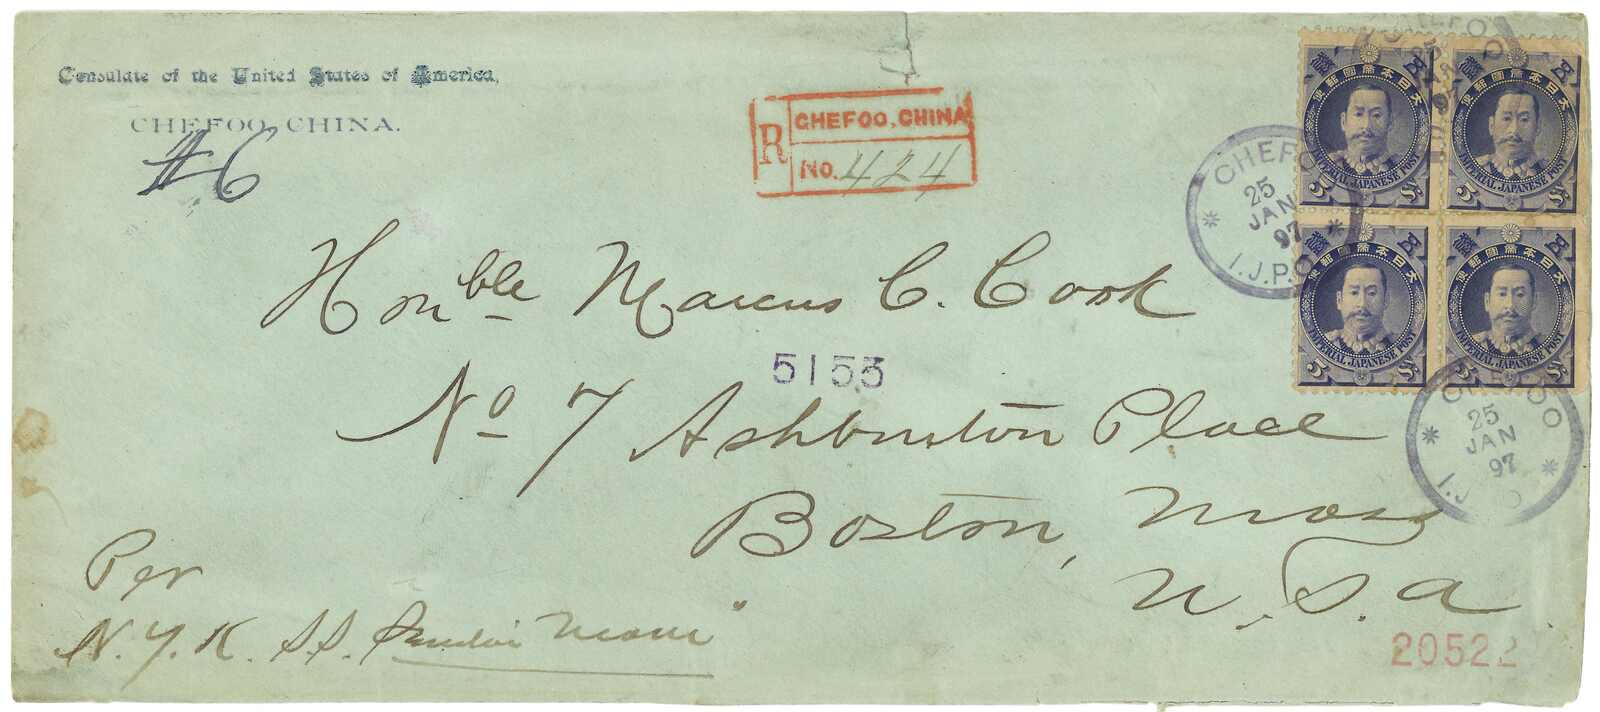 Consulate of the United States of America,
CHEFOO, CHINA.
#6
R
CHEFOO, CHINA
No. 424
Honble Marcus C. Cook
5153
No 7 Ashburton Place
Boston, Mass
U.S.A
Per
N.Y.K. S.S. Maru"
20522
CHEFOO
25
JAN
97
I.J.P.O.
CHEFOO
25
JAN
97
I.J.P.O.
CHEFOO
25
JAN
97
I.J.
大日本帝國郵便
五錢
IMPERIAL JAPANESE POST
5 Sn
大日本帝國郵便
五錢
IMPERIAL JAPANESE POST
5 Sn
大日本帝國郵便
五錢
IMPERIAL JAPANESE POST
5 Sn
大日本帝國郵便
五錢
IMPERIAL JAPANESE POST
5 Sn